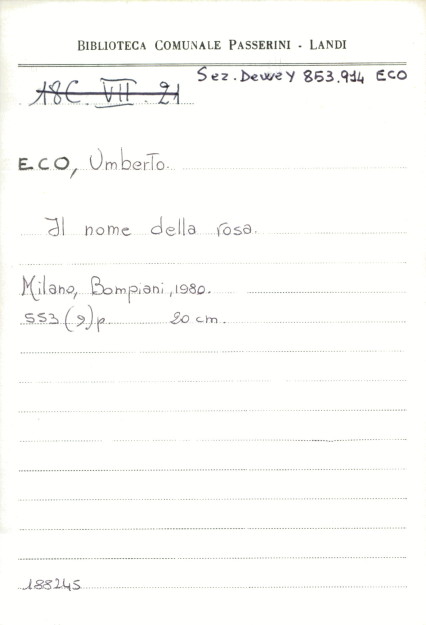 BIBLIOTECA COMUNALE PASSERINI - LANDI
Sez. Dewey 853.914 ECO
18C. VII. 21
ECO, Umberto.
Il nome della rosa.
Milano, Bompiani, 1980.
553 (9) p 20 cm.
188245